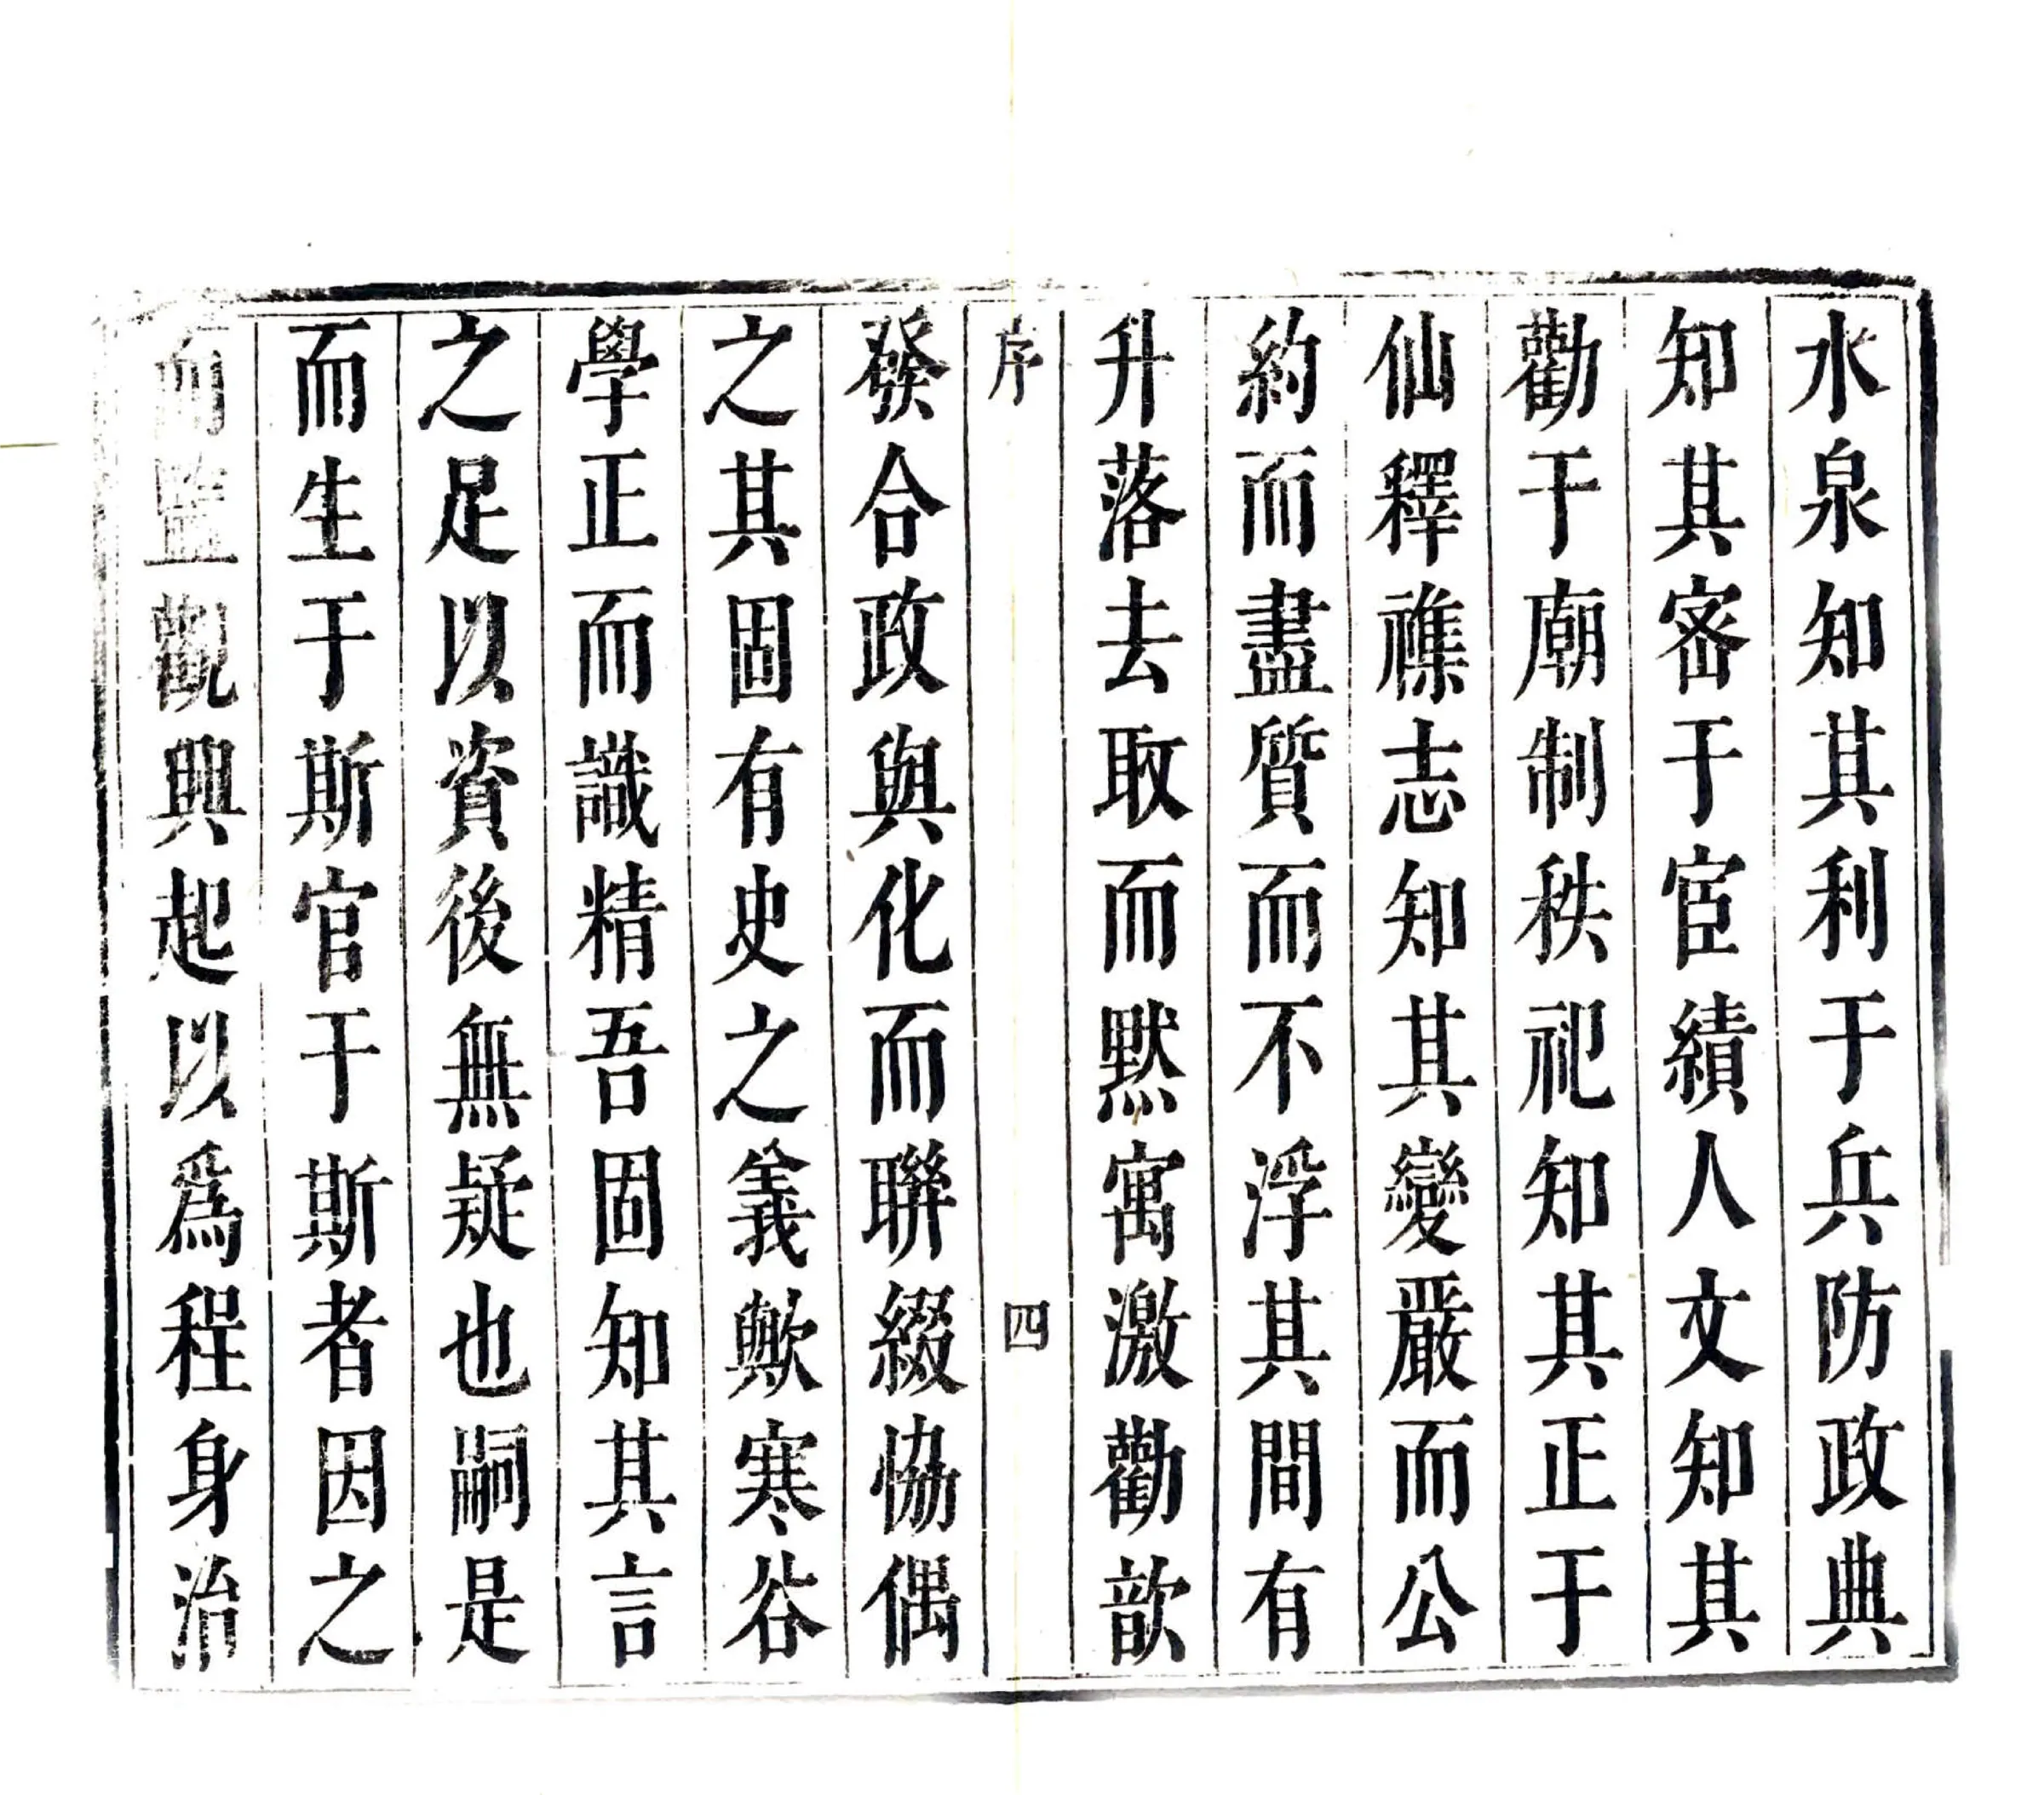 水泉知其利于兵防政典
知其密于宦績人文知其
勸于廟制秩祀知其正于
仙釋襍志知其變嚴而公
約而盡質而不浮其間有
升落去取而默寓激勸歆
序
四
發合政與化而聯綴恊偶
之其固有史之義歟寒谷
學正而識精吾固知其言
之足以資後無疑也嗣是
而生于斯官于斯者因之
而監觀興起以爲程身治